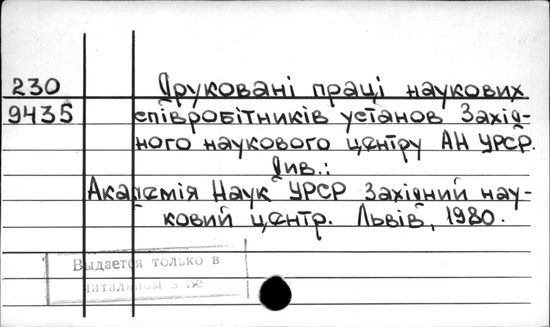 230 Друковані праці наукових
9435 співробітників установ Захід-
ного наукового центру АН УРСР.
Див.:
Академія Наук УРСР Західний нау-
ковий центр. Львів, 1980.
Выдается только в
читальном